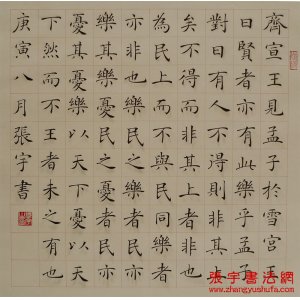 齊宣王見孟子於雪宮王
曰賢者亦有此樂乎孟子
對曰有人不得則非其上
矣不得而非其上者非也
為民上而不與民同樂者
亦非也樂民之樂者民亦
樂其樂憂民之憂者民亦
憂其憂樂以天下憂以天
下然而不王者未之有也
庚寅八月張宇書
張宇書法網
www.zhangyushufa.com